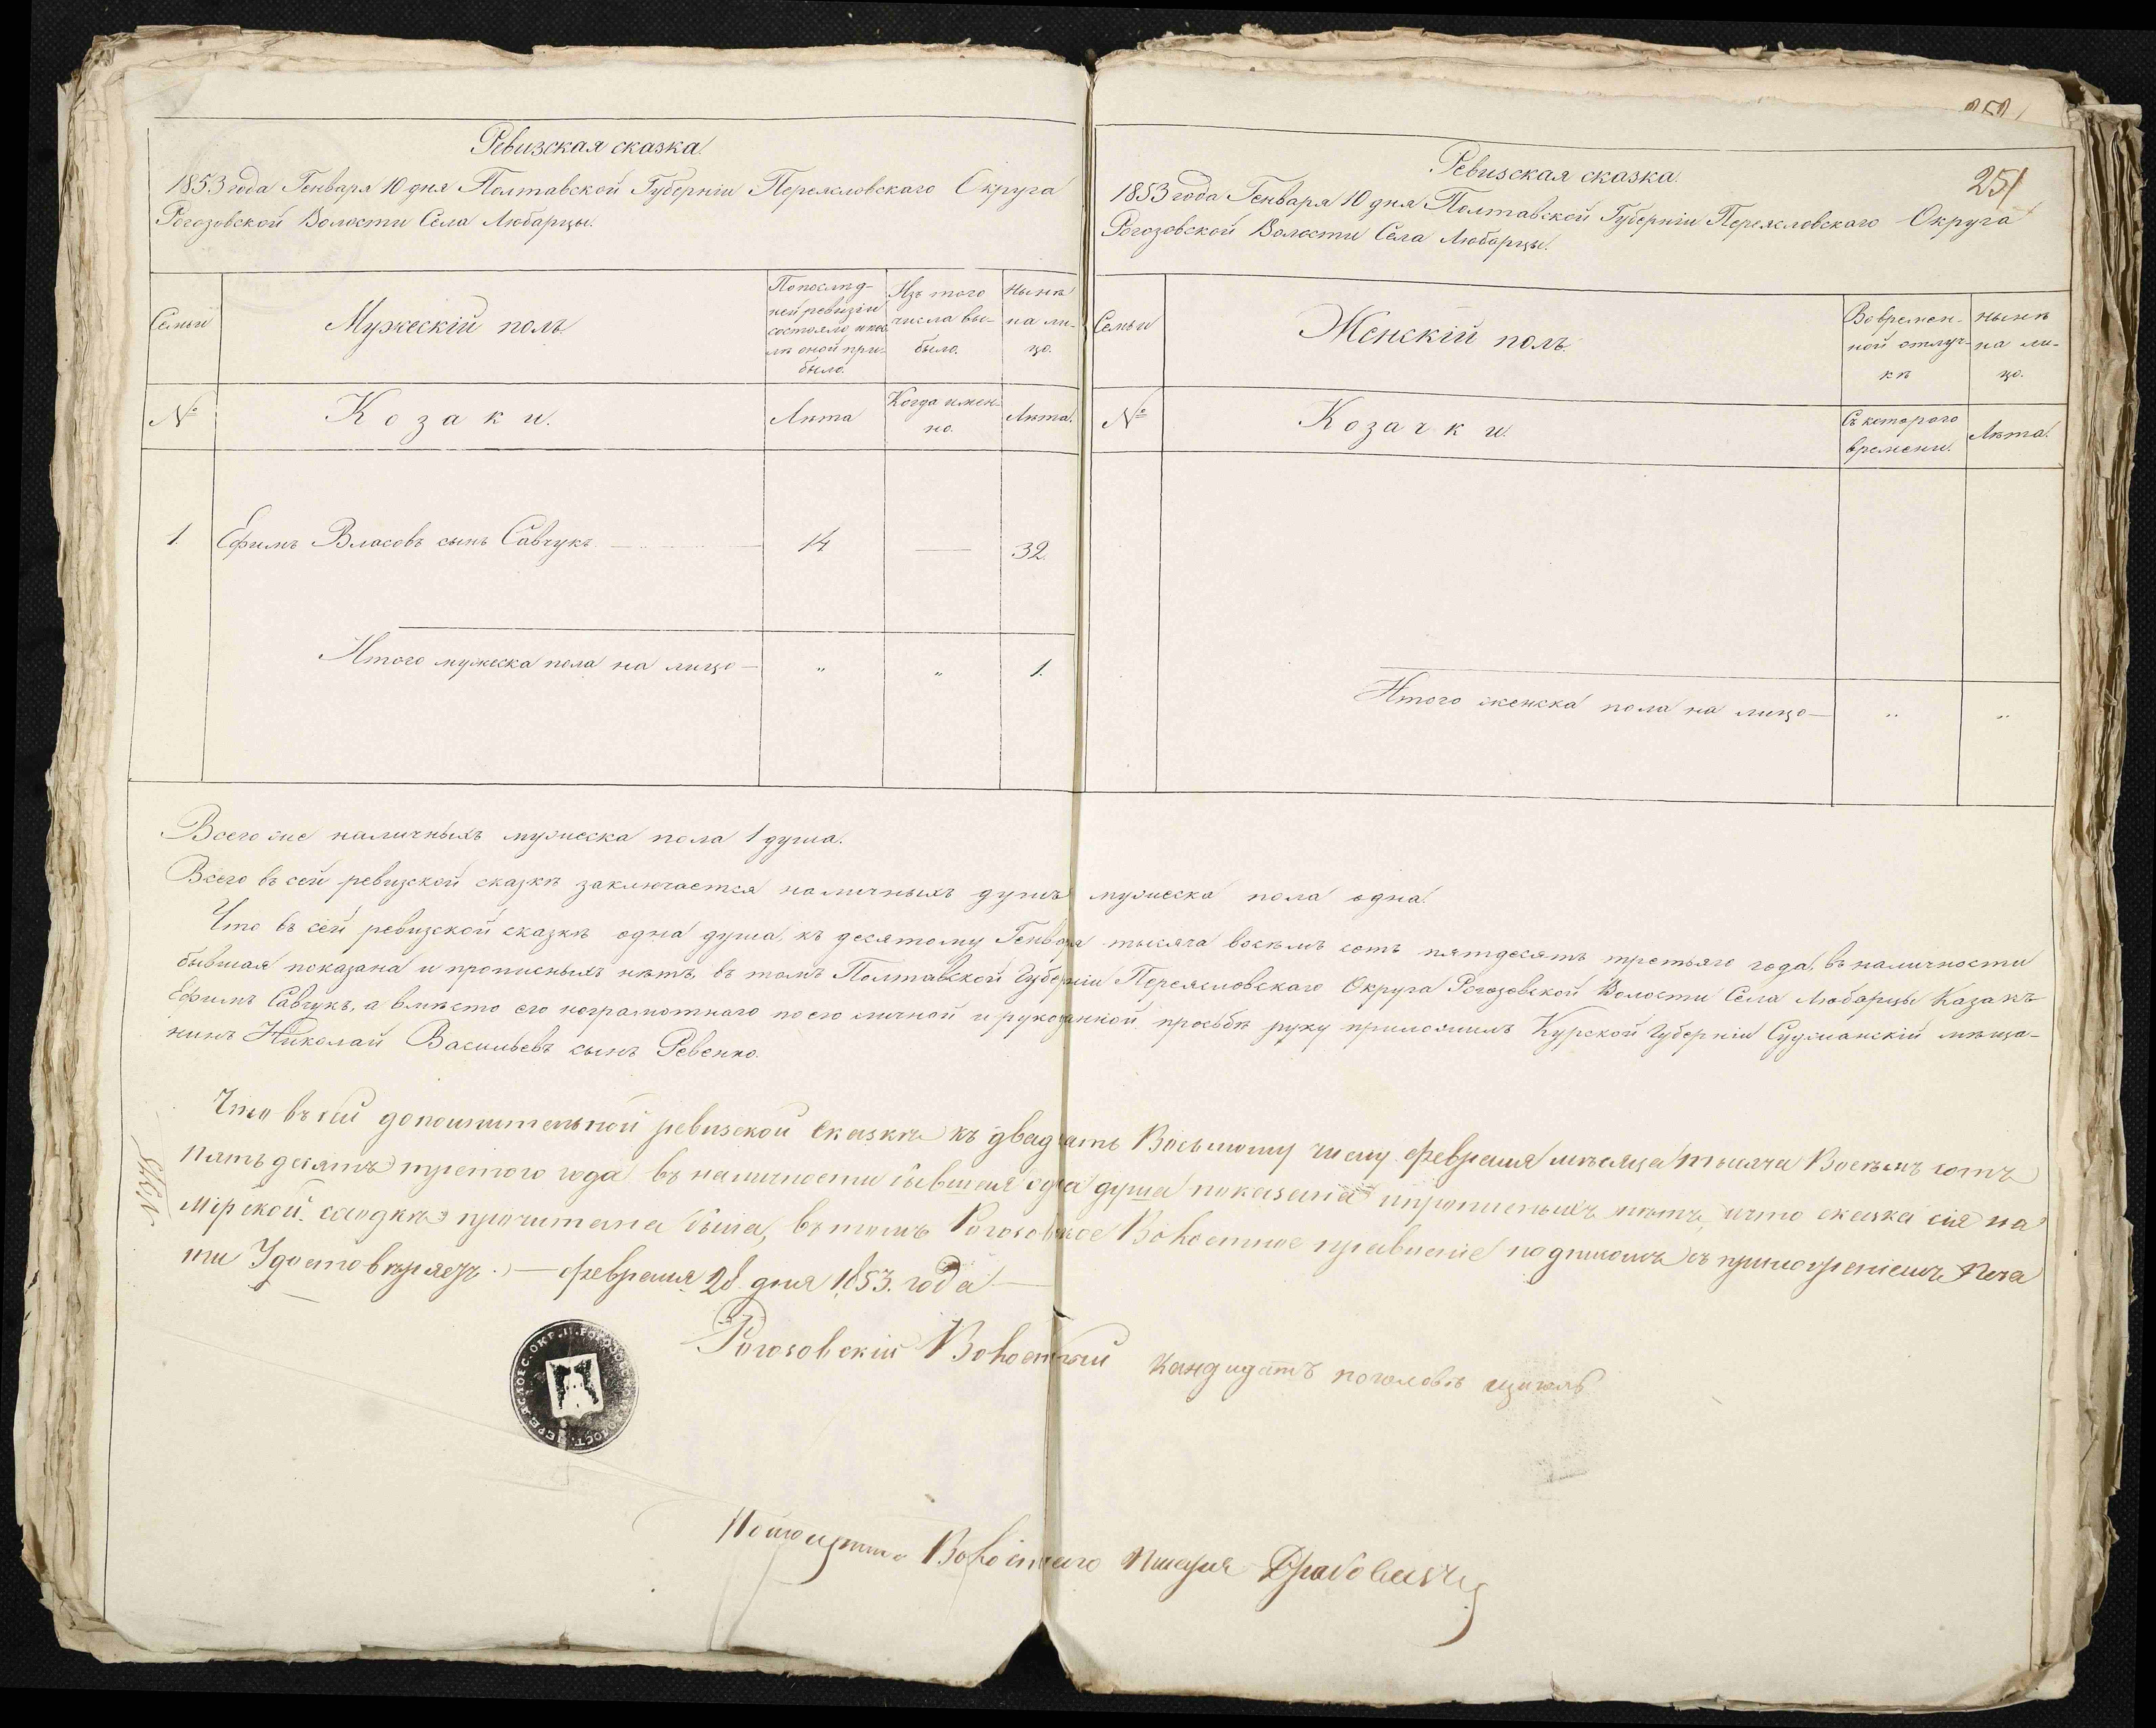 Ревизская сказка.
1853 года Генваря 10 дня Полтавской Губерніи Переясловскаго Округа
Рогозовской Волости Села Любарцы.
Семьи
Мужескій полъ
По послѣд-
ней ревизіи
состояло и пос-
лѣ оной при-
было.
Изъ того
числа вы-
было.
Нынѣ
на ли-
цо.
№
Козаки.
Лѣта
Когда имен-
но.
Лѣта.
1.
Ефимъ Власовъ сынъ Савчукъ
14
32.
Итого мужеска пола на лицо
"
"
1.
251
Ревизская сказка.
1853 года Генваря 10 дня Полтавской Губерніи Переясловскаго Округа
Рогозовской Волости Села Любарцы.
Семьи
Женскій полъ.
Во времен-
ной отлуч-
кѣ
Нынѣ
на ли-
цо.
№
Козачки.
Съ котораго
времени.
Лѣта.
Итого женска пола на лицо
"
"
Всего же наличныхъ мужеска пола 1 душа.
Всего въ сей ревизской сказкѣ заключается наличныхъ душъ мужеска пола одна.
Что въ сей ревизской сказкѣ одна душа, къ десятому Генваря тысяча восемь сотъ пятдесятъ третьяго года, въ наличности
бывшая показана и прописныхъ нѣтъ, въ томъ Полтавской Губерніи Переясловскаго Округа Рогозовской Волости Села Любарцы Казакъ
Ефимъ Савчукъ, а вмѣсто его неграмотнаго по его личной и рукоданной просьбѣ руку приложилъ Курской Губерніи Суджанскій мѣща-
нинъ Николай Васильевъ сынъ Ревенко.
Что въ сей дополнительной ревизской сказкѣ къ двадцать Восьмому числу февраля мѣсяца тысяча Восемь сотъ
пятьдесятъ третого года въ наличности бывшая одна душа показана и прописныхъ нѣтъ, и что сказка сія на
Мірской сходкѣ прочитана была, въ томъ Рогозовское Волостное правленіе подписомъ съ приложеніемъ Печа
ти Удостовѣряетъ. февраля 28 дня 1853. года
Рогозовскій Волостный кандидатъ по головѣ
Волостнаго Писаря